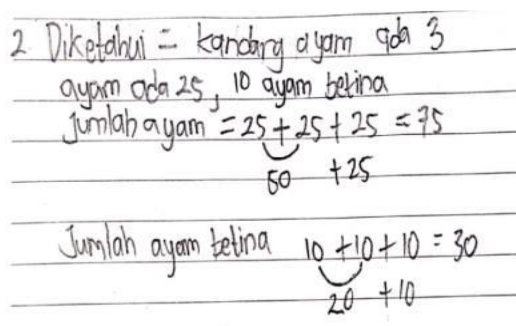 2. Diketahui = kandang ayam ada 3
ayam ada 25, 10 ayam betina
Jumlah ayam = 25 + 25 + 25 = 75
50 + 25
Jumlah ayam betina 10 + 10 + 10 = 30
20 + 10